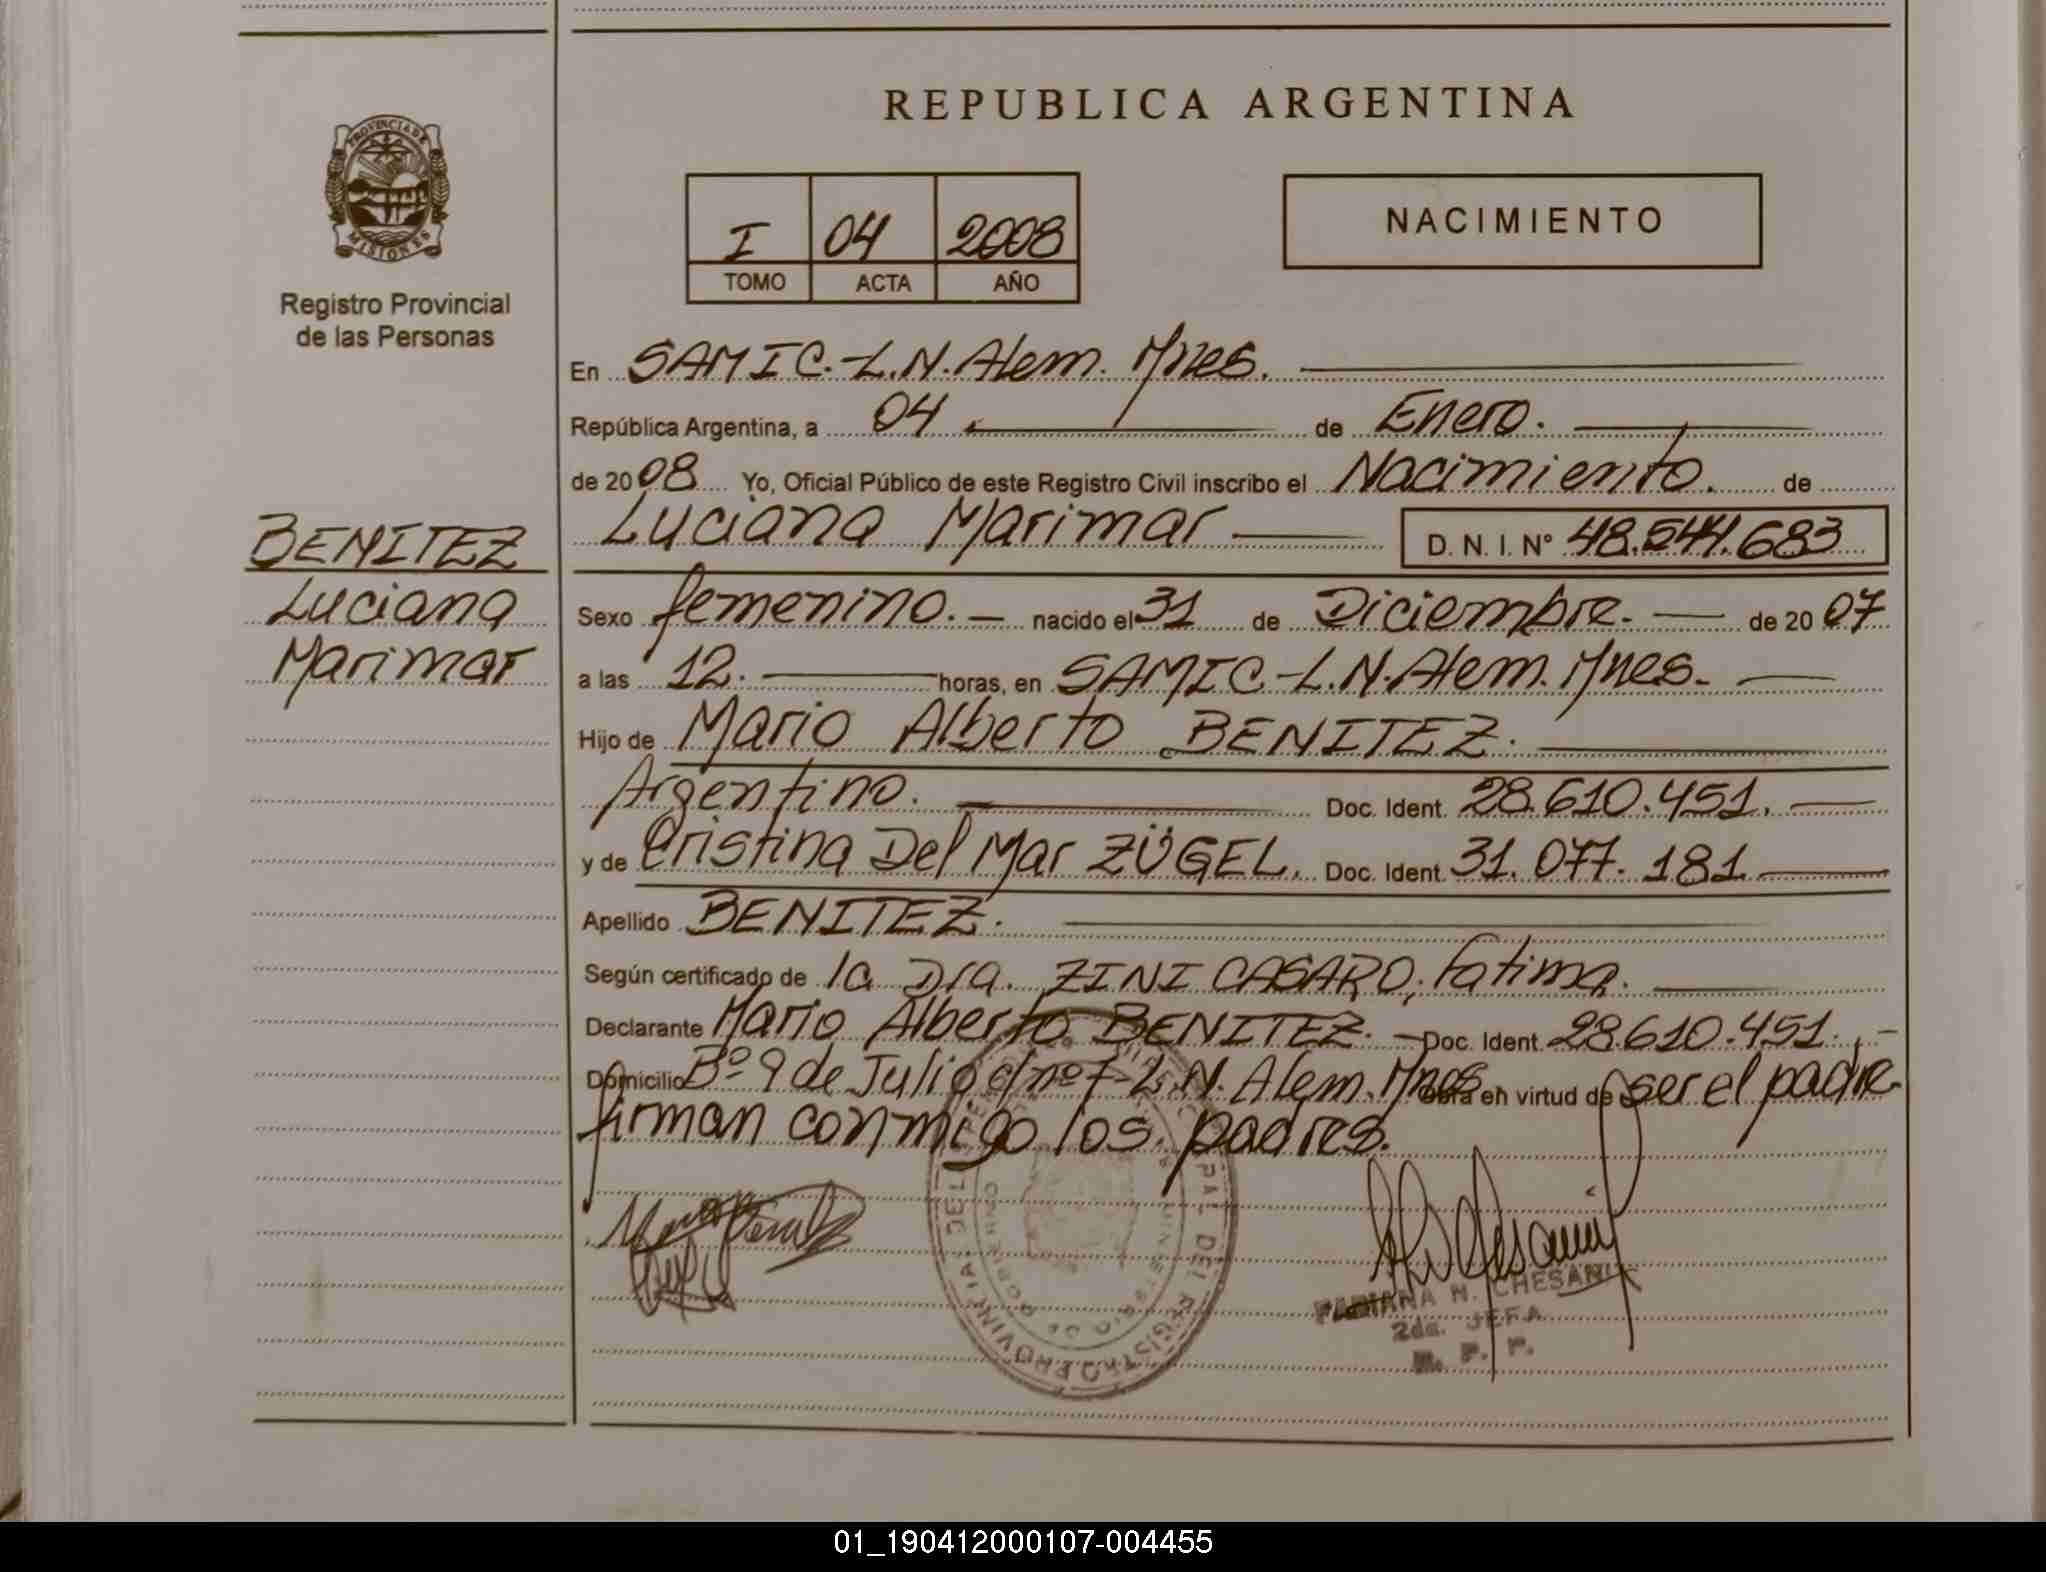 REPUBLICA ARGENTINA
PROVINCIA DE
MISIONES
Registro Provincial
de las Personas
I 04 2008
TOMO ACTA AÑO
NACIMIENTO
En SAMIC.-L.N.Alem. Mnes.
República Argentina, a 04 de Enero.
de 2008 Yo, Oficial Público de este Registro Civil inscribo el Nacimiento. de
Luciana Marimar D. N. I. Nº 48.544.683
BENITEZ
Luciana
Marimar
Sexo femenino.- nacido el 31 de Diciembre.- de 2007
a las 12. horas, en SAMIC-L.N.Alem. Mnes.-
Hijo de Mario Alberto BENITEZ.
Argentino. Doc. Ident. 28.610.451.
y de Cristina Del Mar ZÜGEL. Doc. Ident. 31.077.181
Apellido BENITEZ.
Según certificado de la Dra. ZINI CASARO, Fatima.
Declarante Mario Alberto BENITEZ.- Doc. Ident. 28.610.451.-
Domicilio Bº 9 de Julio c/nº7-L.N. Alem. Mnes. Obra en virtud de ser el padre
firman conmigo los padres.
FABIANA N. CHESANI
2da. JEFA
R. P. P.
01_190412000107-004455